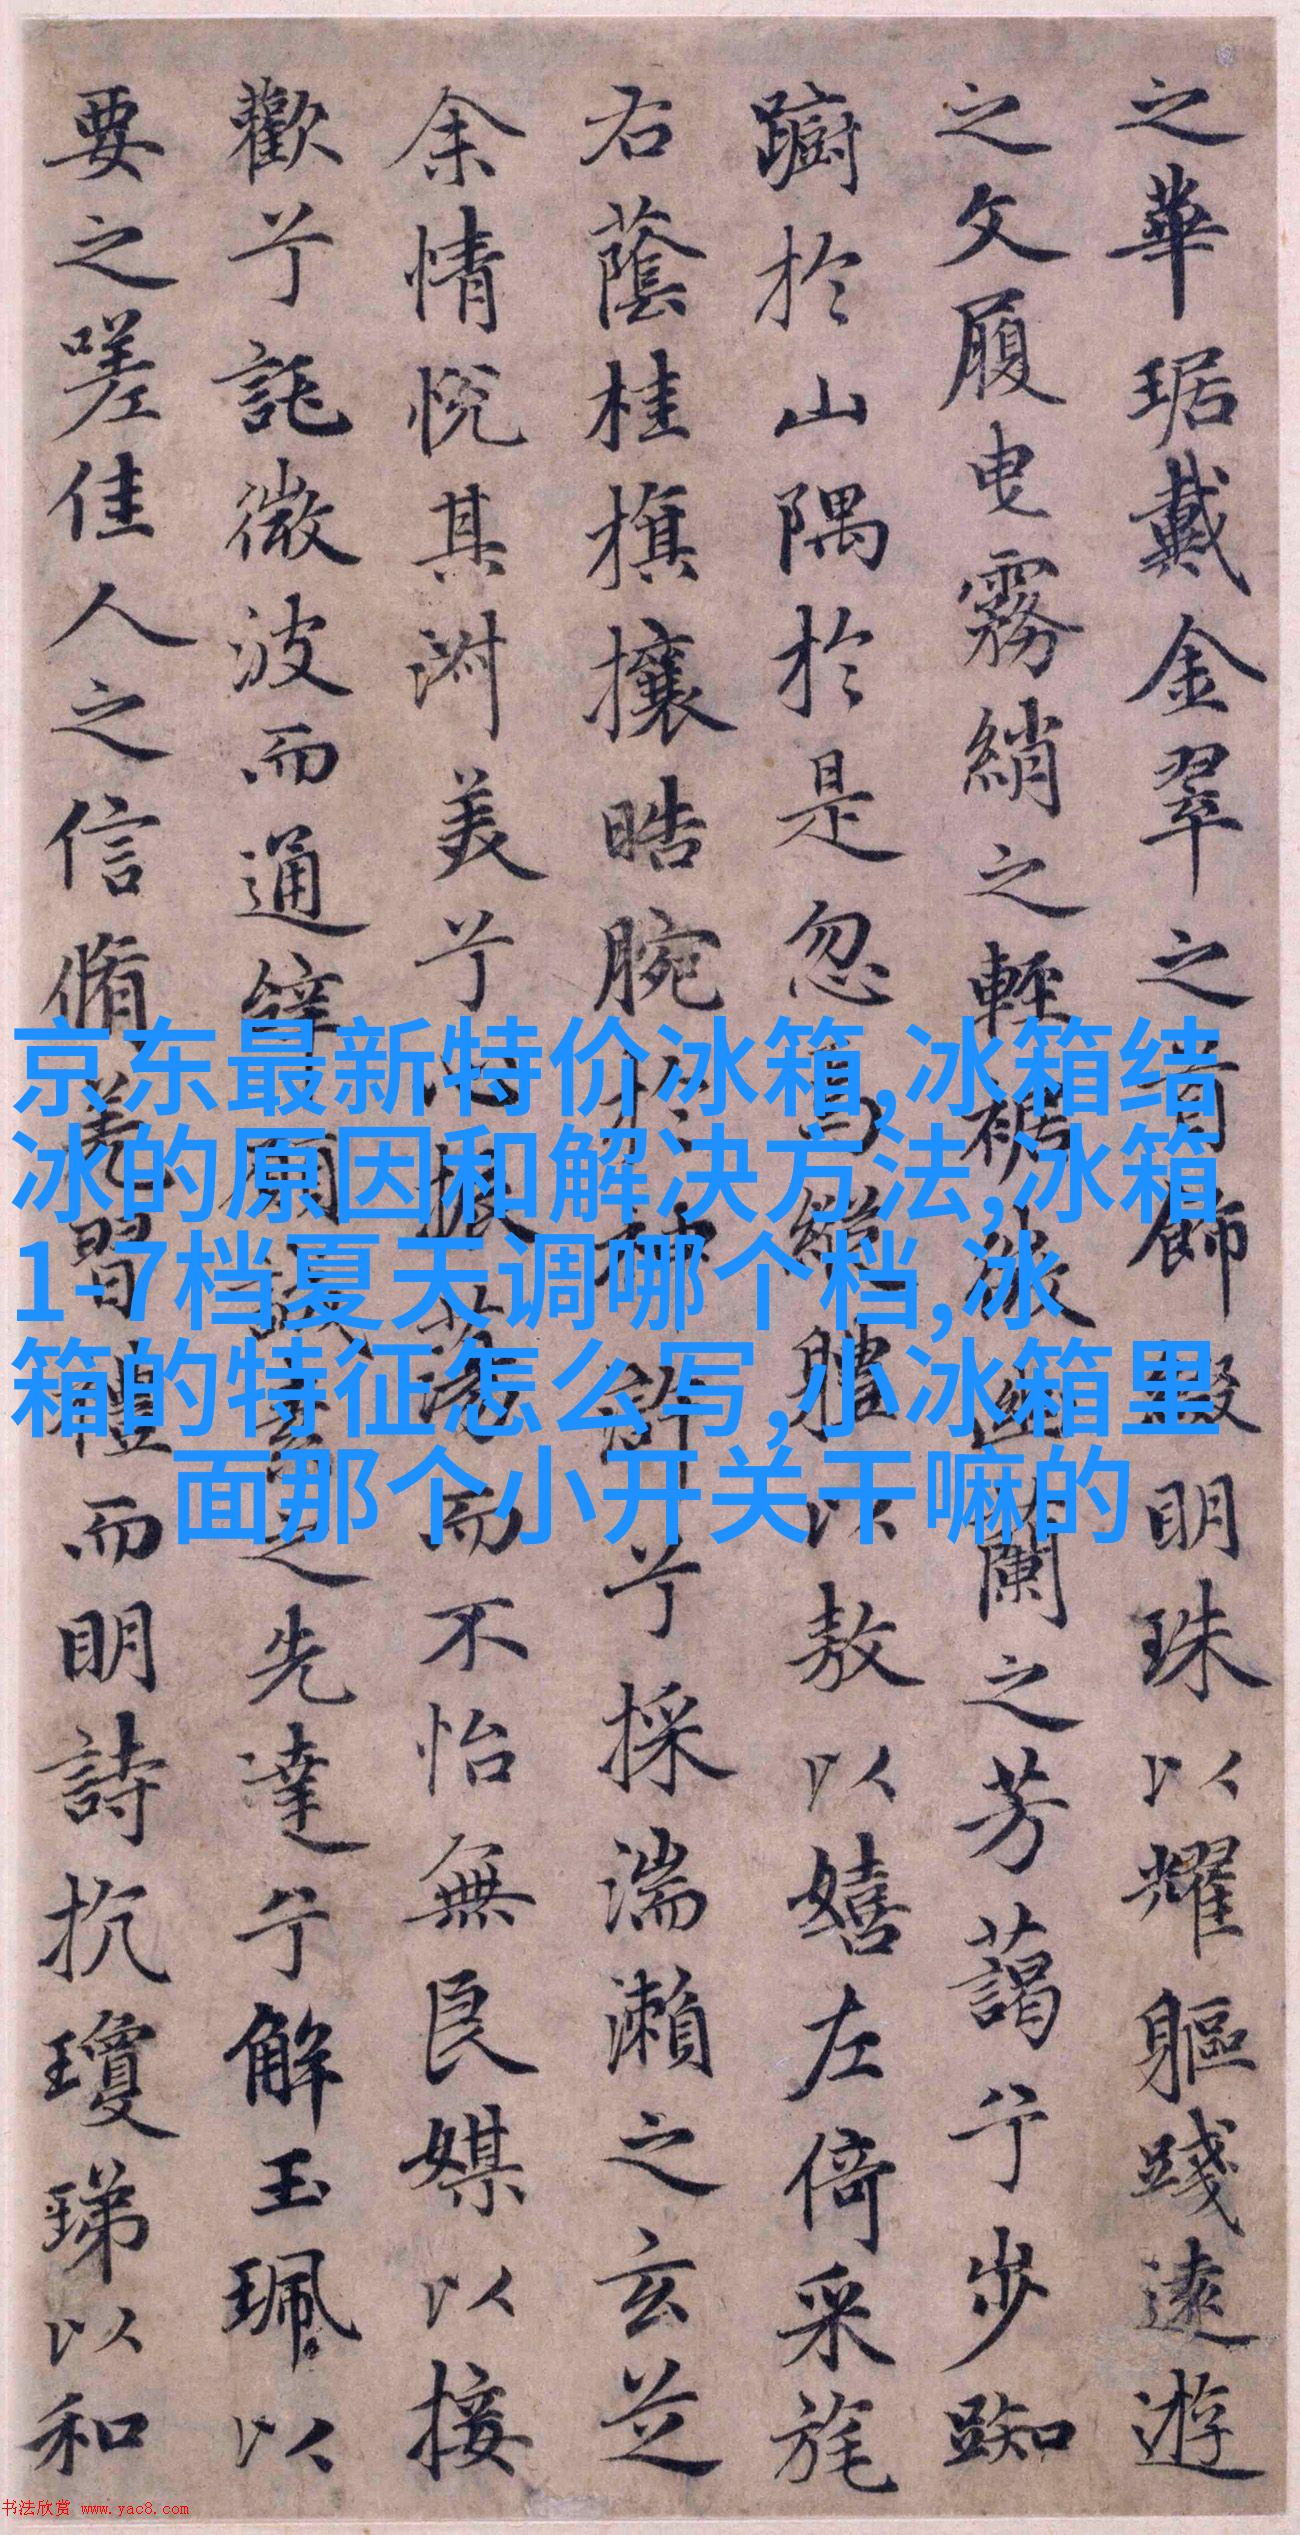 之華琚戴金翠之首飾綴明珠以耀軀踐遠遊
之文履曳霧綃之輕裾微幽蘭之芳藹兮步踟
躕於山隅於是忽焉縱體以敖以嬉左倚采旄
右蔭桂旗攘皓腕於神滸兮採湍瀨之玄芝
余情悅其淑美兮心振蕩而不怡無良媒以接
歡兮託微波而通辭願誠素之先達兮解玉珮以
要之嗟佳人之信脩羌習禮而明詩抗瓊珶以和
京东最新特价冰箱,冰箱结
冰的原因和解决方法,冰箱
1-7档夏天调哪个档,冰
箱的特征怎么写,小冰箱里
面那个小开关干嘛的
书法欣赏 www.yac8.com